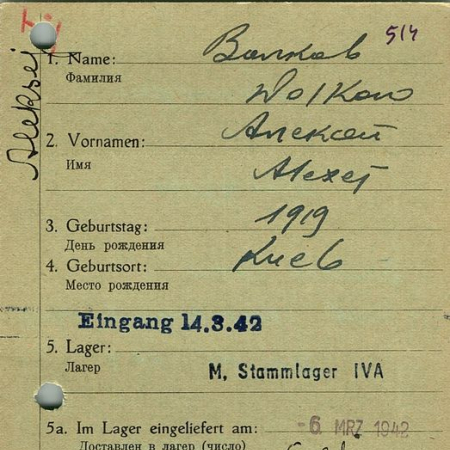 514
1. Name: Волков
Фамилия
Wolkow
2. Vornamen: Алексей
Имя
Alexej
Aleksej
3. Geburtstag: 1919
День рождения
4. Geburtsort: Киев
Место рождения
Eingang 14.3.42
5. Lager:
Лагер
M, Stammlager IVA
5a. Im Lager eingeliefert am: -6. MRZ 1942
Доставлен в лагер (число)